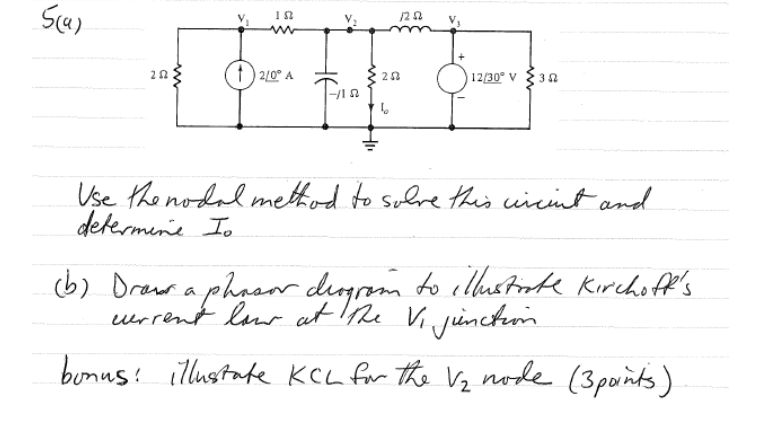 5(a)
V₁ 1 Ω V₂ j2 Ω V₃
2 Ω 2/0° A -j1 Ω 2 Ω + 12/30° V - 3 Ω
Iₒ
Use the nodal method to solve this circuit and
determine Iₒ
(b) Draw a phasor diagram to illustrate Kirchoff's
current law at the V₁ junction
bonus: illustate KCL for the V₂ node (3 points)